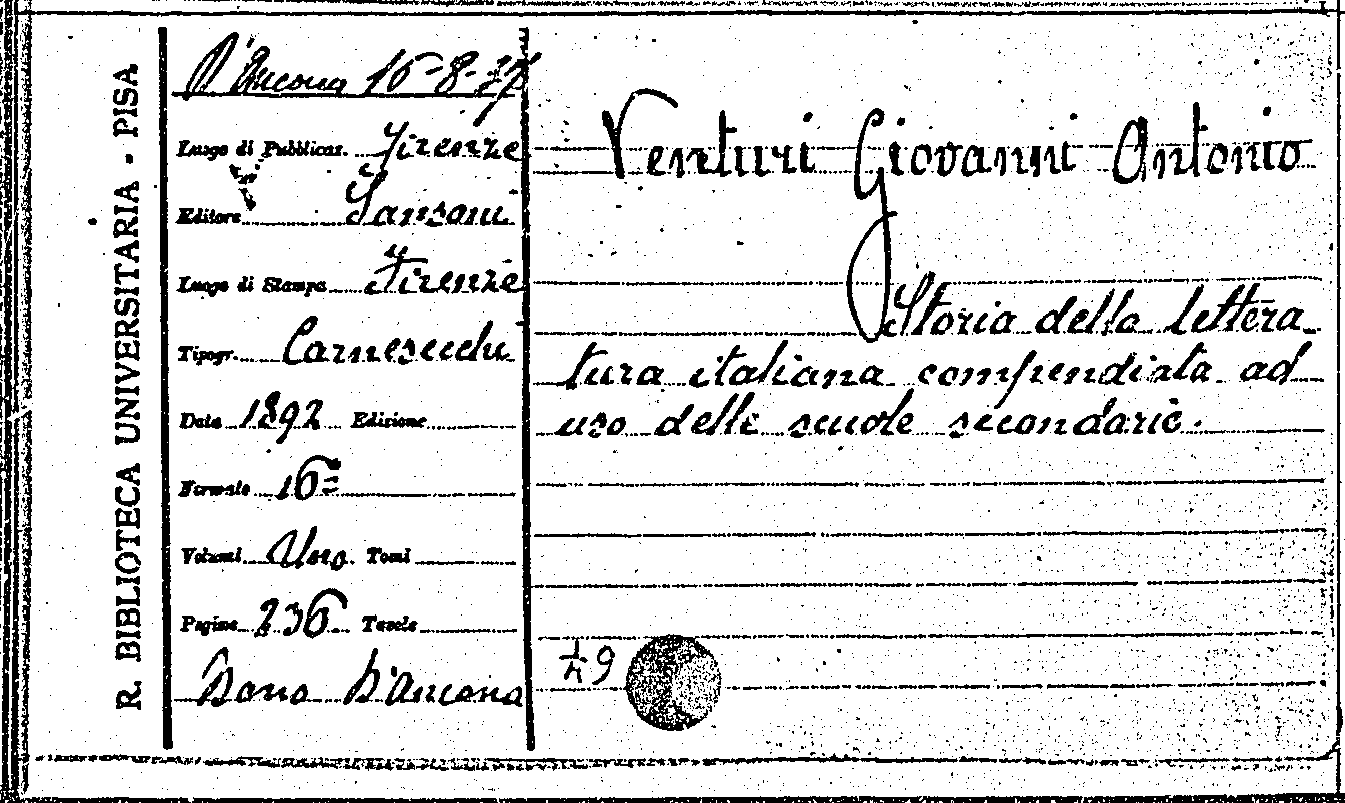 R. BIBLIOTECA UNIVERSITARIA - PISA
D'Ancona 16-8-37
Luogo di Pubblicaz. Firenze
Editore Sansoni
Luogo di Stampa Firenze
Tipogr. Carnesecchi
Data 1892 Edizione
Formato 16=
Volumi Uno Tomi
Pagine 236 Tavole
Dono D'Ancona
Venturi Giovanni Antonio
Storia della lettera-
tura italiana compendiata ad
uso delle scuole secondarie.